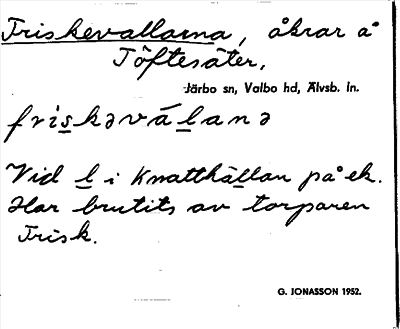 Friskevallarna, åkrar å
Töftesäter,
Järbo sn, Valbo hd, Älvsb. ln.
friskəválanə
Vid l i Knatthällan på ek.
Har brutits av torparen
Frisk.
G. JONASSON 1952.